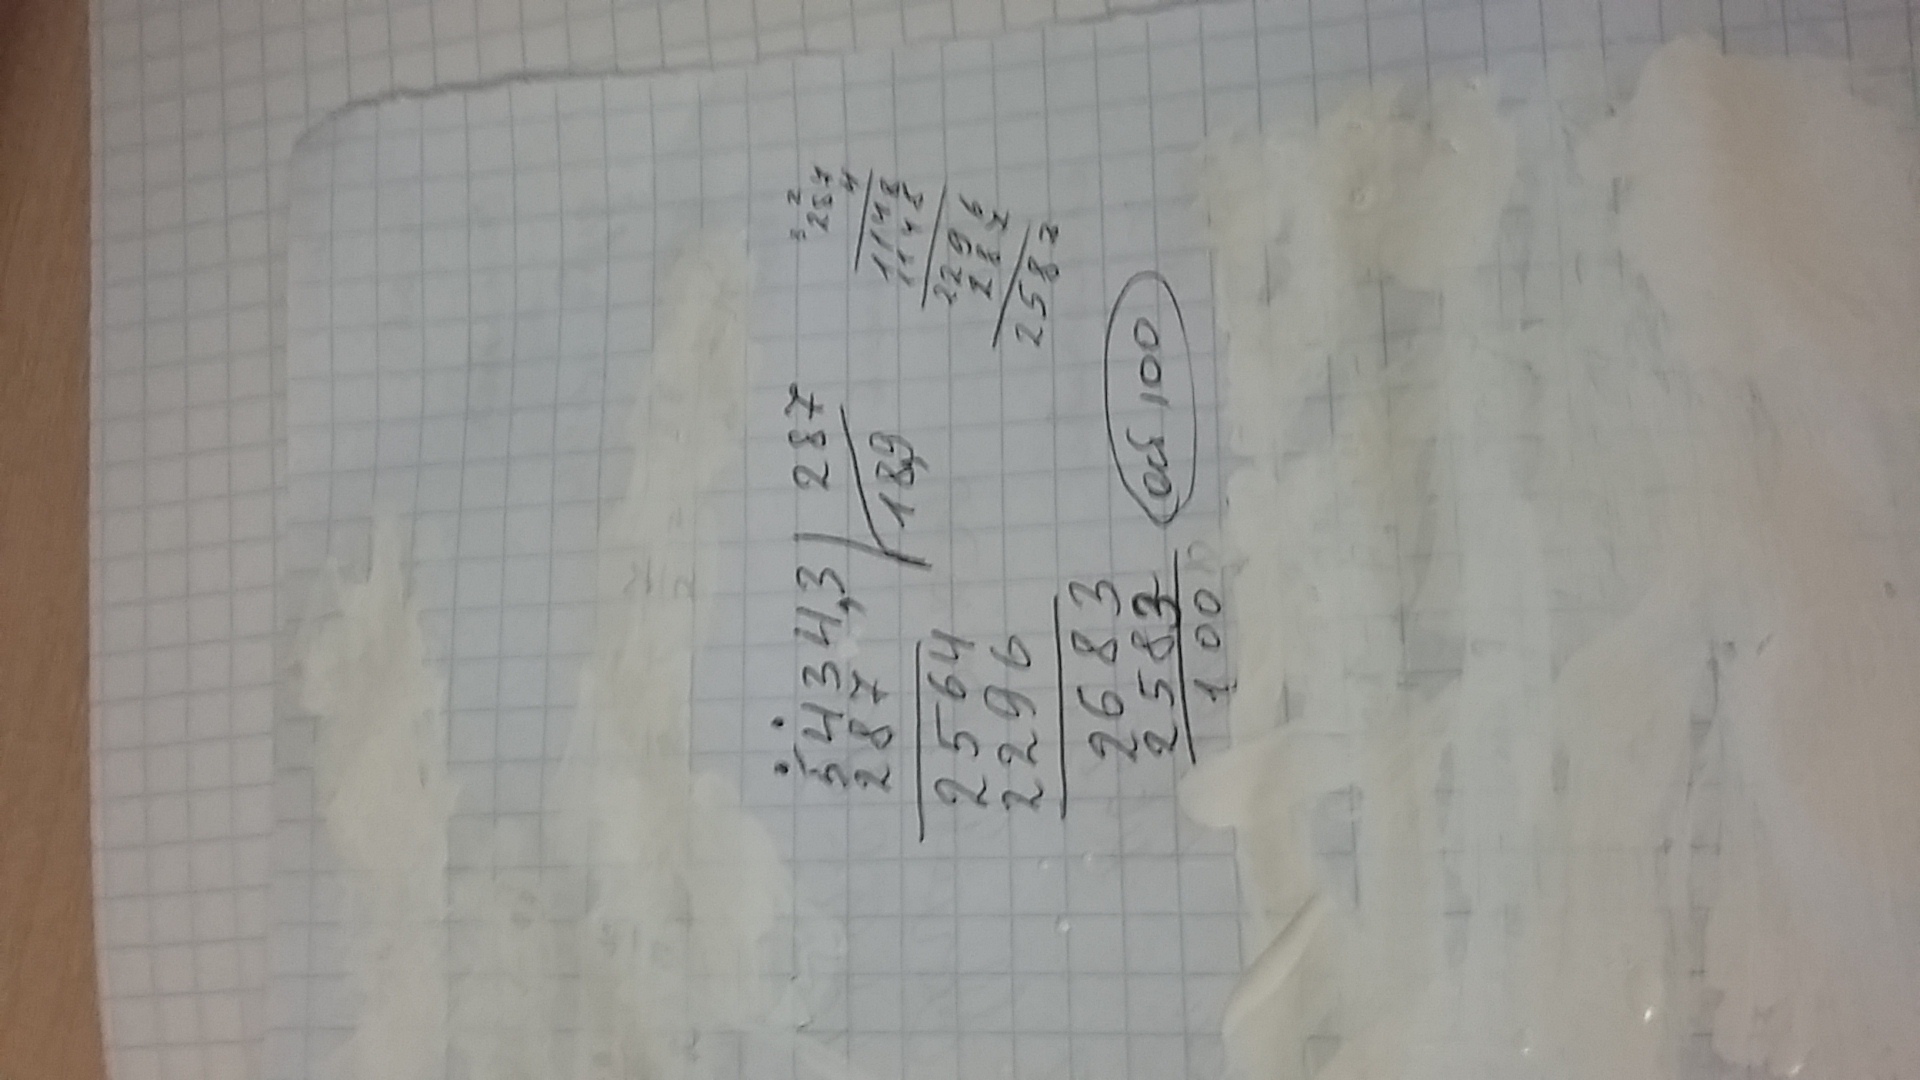 5434,3 | 287
287 18,9
2564
2296
2683
2583
100
ост 100
3 2
287
4
1148
1148
2296
287
2583